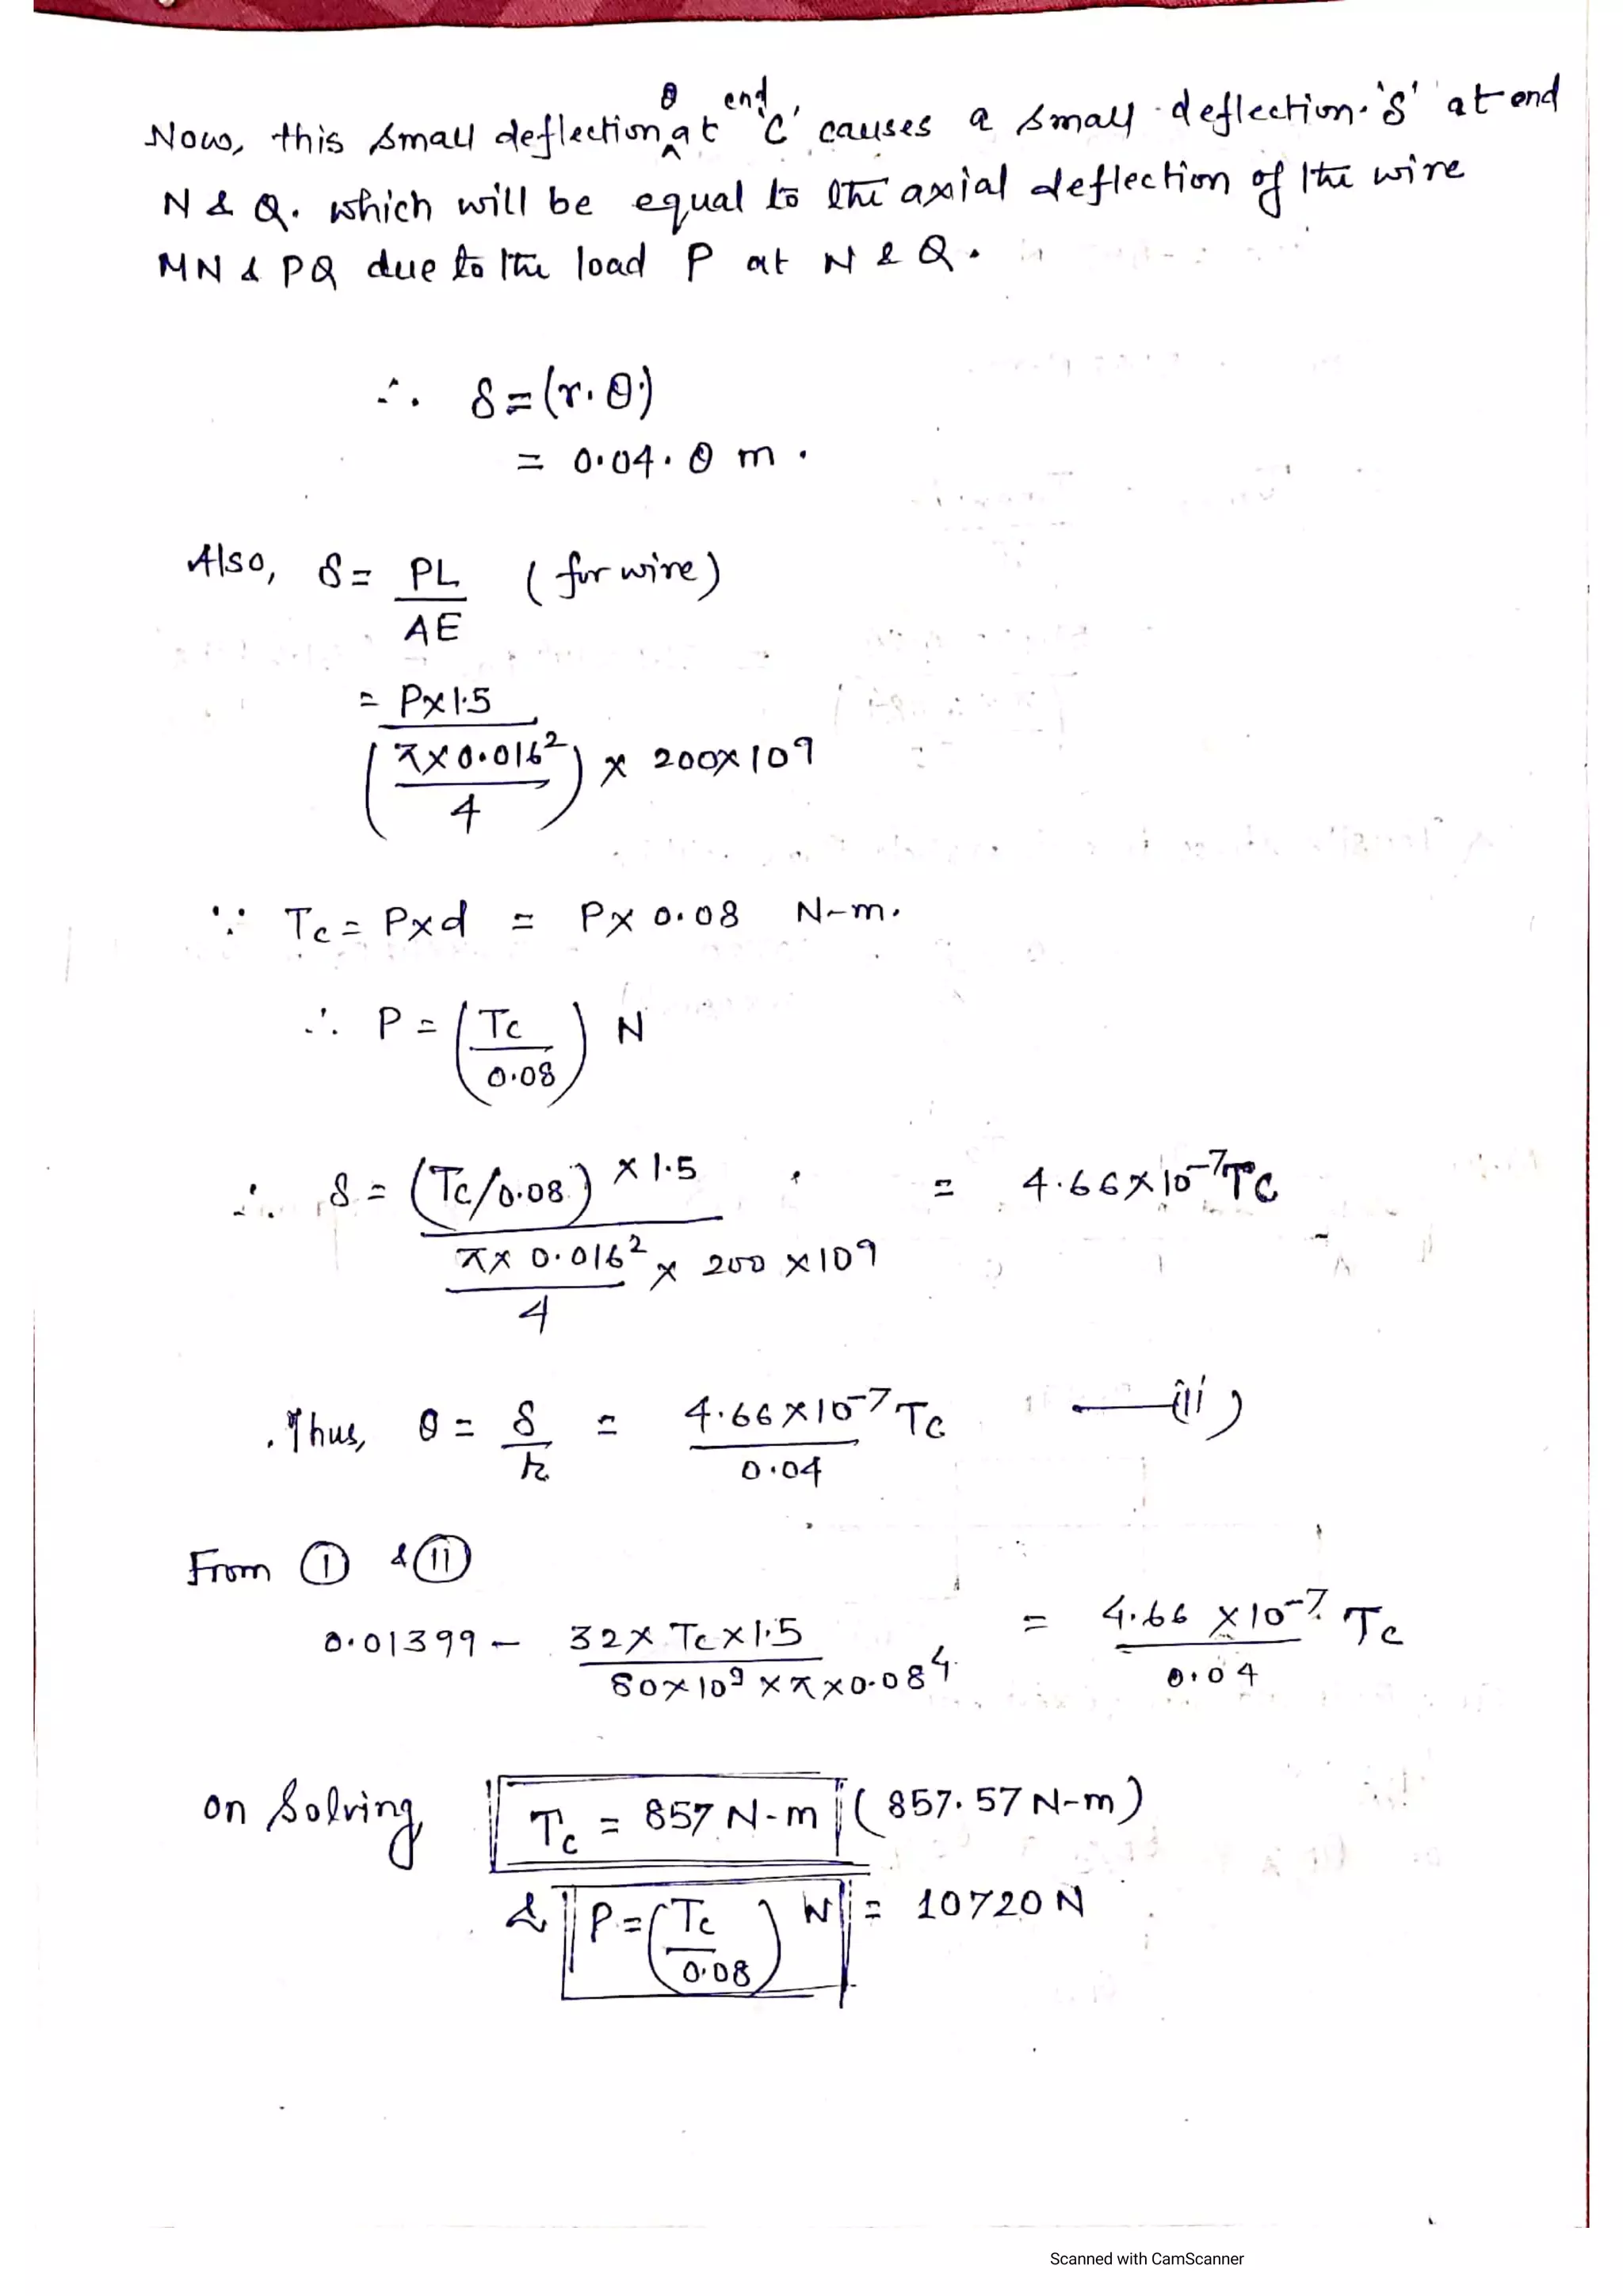 Now, this small deflection θ at end 'C' causes a small deflection 'δ' at end
N & Q. which will be equal to the axial deflection of the wire
MN & PQ due to the load P at N & Q.
∴ δ = (r.θ)
= 0.04.θ m.
Also, δ = PL/AE (for wire)
= P×1.5 / (π×0.016²/4) × 200×10⁹
∵ Tc = P×d = P×0.08 N-m.
∴ P = (Tc/0.08) N
∴ δ = (Tc/0.08) × 1.5 / π×0.016²/4 × 200×10⁹ = 4.66×10⁻⁷Tc
Thus, θ = δ/r = 4.66×10⁻⁷Tc / 0.04 —(ii)
From (I) & (II)
0.01399 - 32×Tc×1.5 / 80×10⁹×π×0.08⁴ = 4.66×10⁻⁷ Tc / 0.04
on solving Tc = 857 N-m (857.57 N-m)
& P = (Tc/0.08) N = 10720 N
Scanned with CamScanner